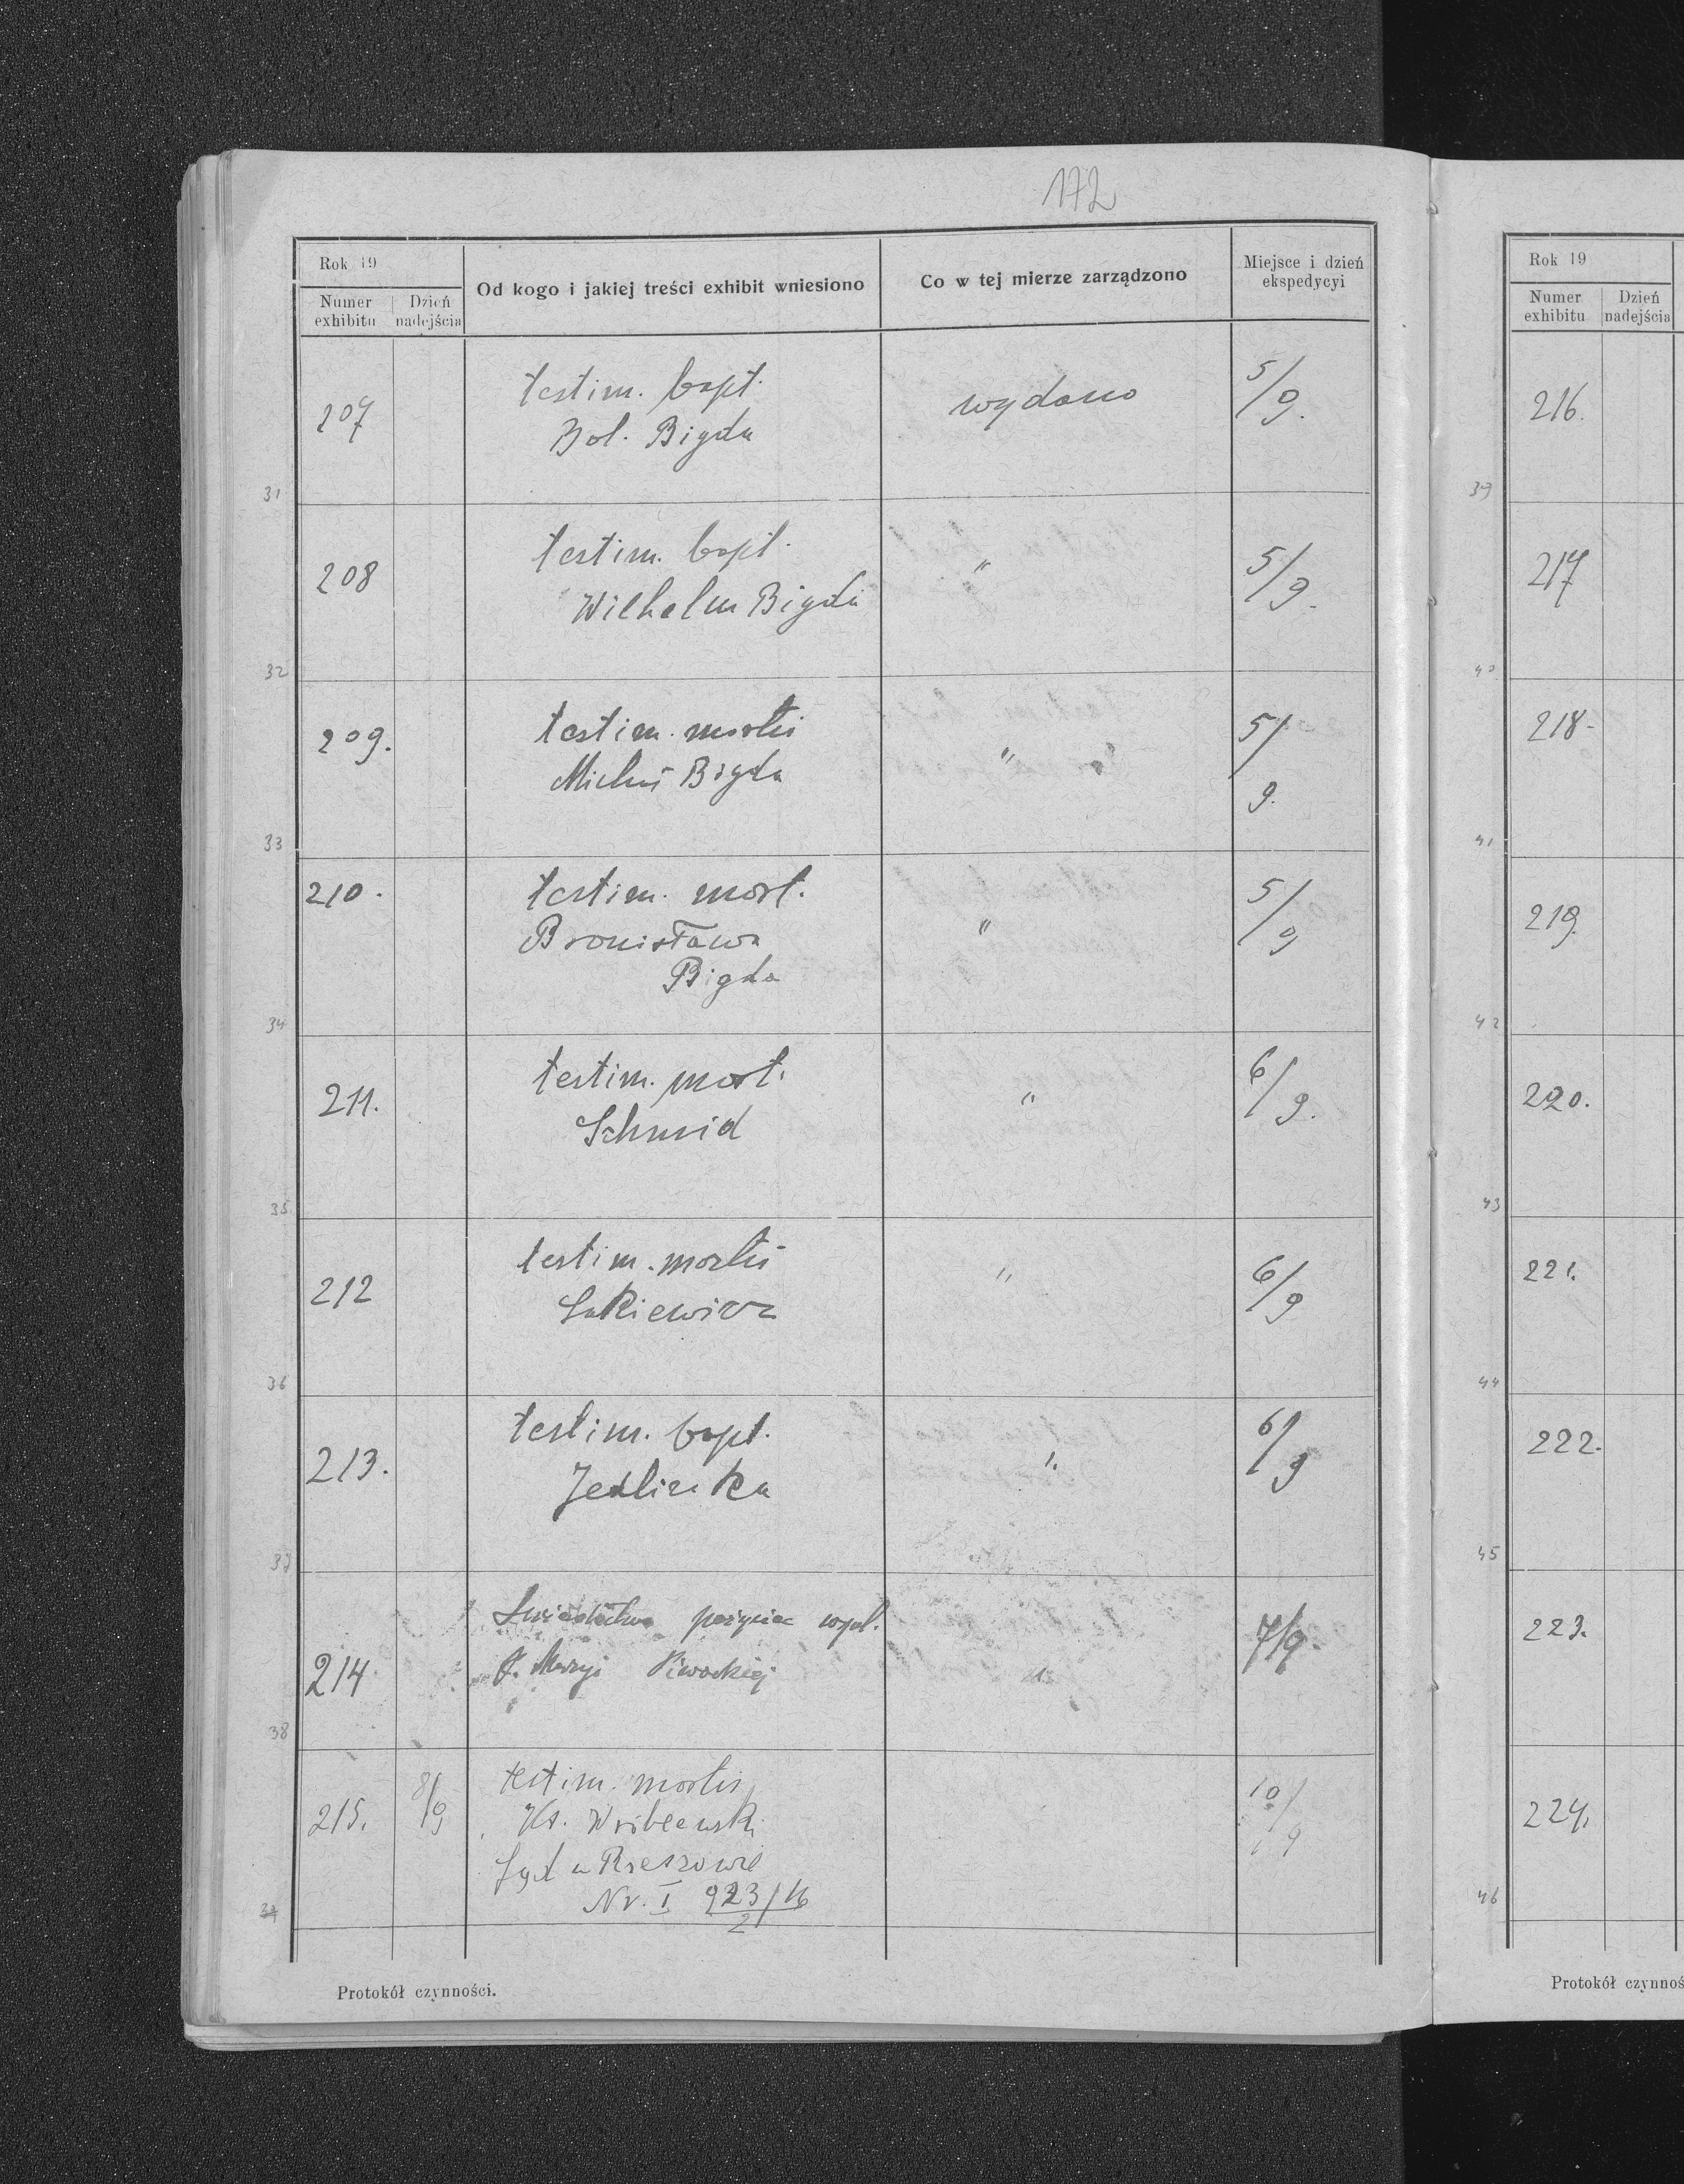 172
Rok 19
Numer exhibitu
Dzień nadejścia
Od kogo i jakiej treści exhibit wniesiono
Co w tej mierze zarządzono
Miejsce i dzień ekspedycyi
207
testim. bapt.
Bol. Bigda
wydano
5/9.
31
208
testim. bapt.
Wilhelm Bigda
"
5/9.
32
209.
testim. mortis
Bigda
"
5/9.
33
210.
testim. mort.
Bronisława
Bigda
"
5/9
34
211.
testim. mort.
Schmid
"
6/9.
35
212
testim. mortis
"
6/9
36
213.
testim. bapt.
Jedlicka
"
6/9
37
214
7/9.
38
215.
8/9
testim. mortis
Sąd w Rzeszowie
Nr. I 923/16
2
10/9
39
Protokół czynności.
Rok 19
Numer exhibitu
Dzień nadejścia
216.
39
217
40
218-
41
219.
42
220.
43
221.
44
222.
45
223.
224.
46
Protokół czynnoś